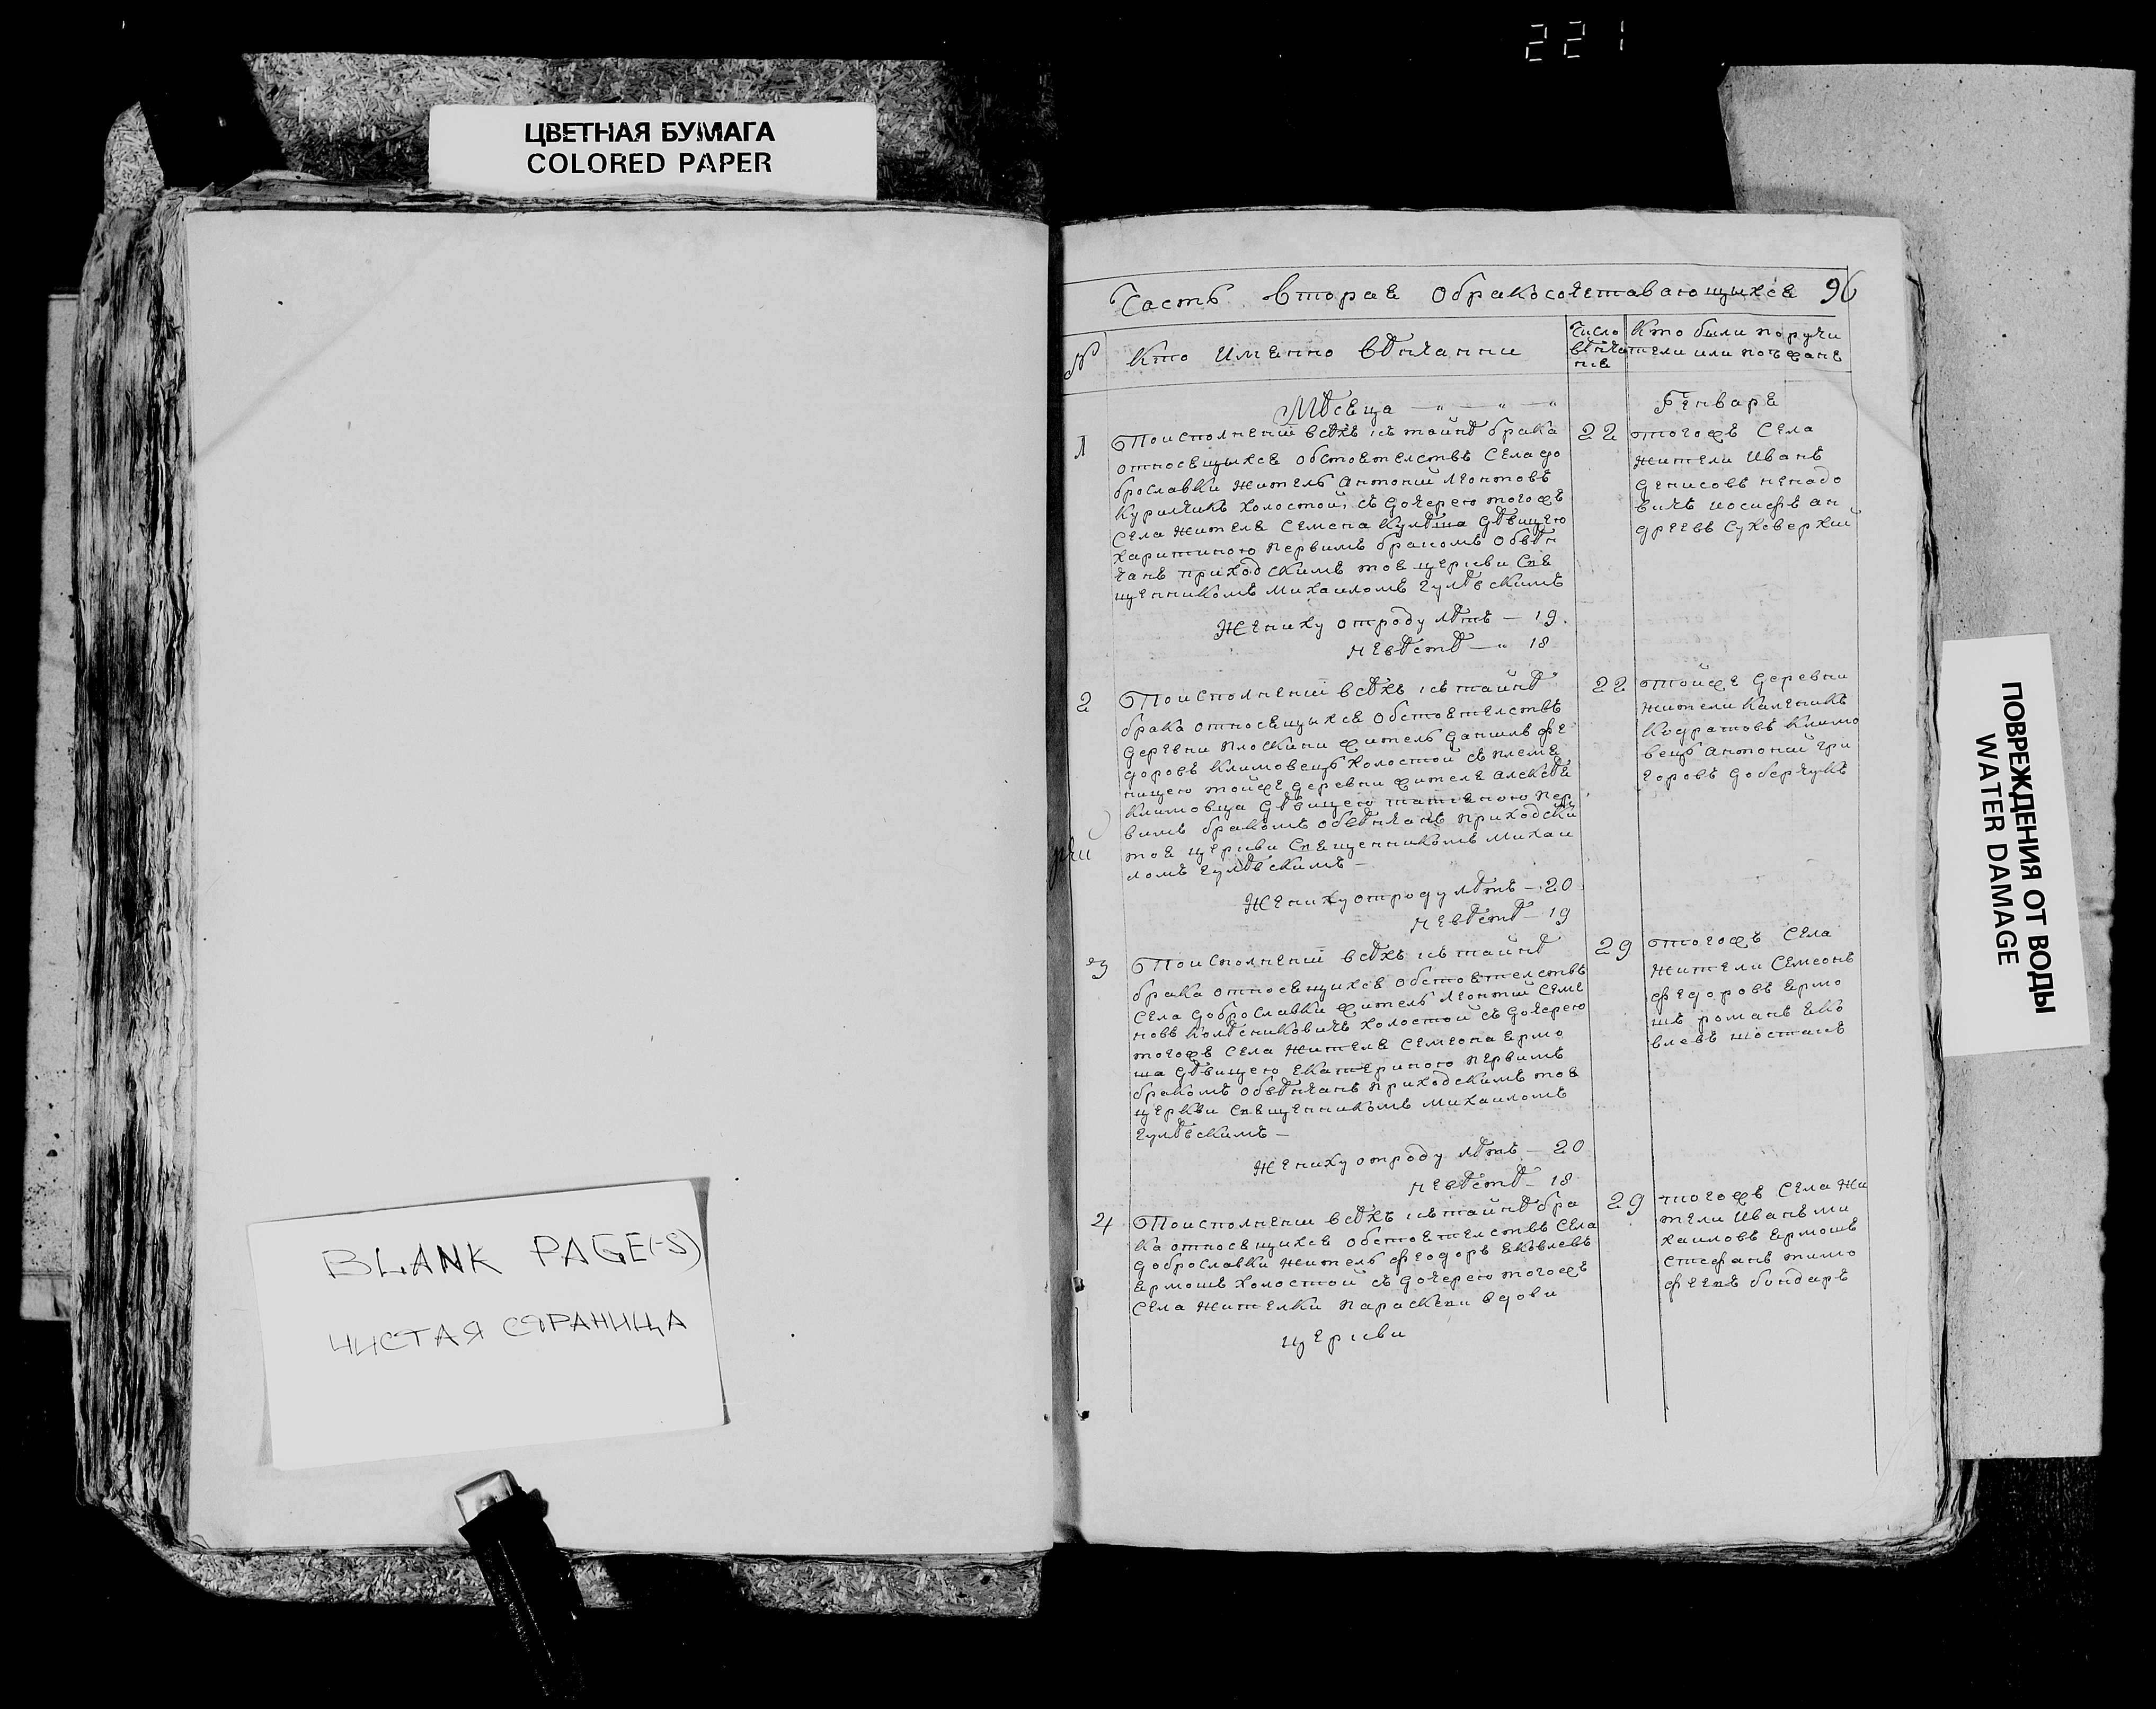 221
ЦВЕТНАЯ БУМАГА
COLORED PAPER
BLANK PAGE(-S)
ЧИСТАЯ СТРАНИЦА
Часть вторая о бракосочетавающихся 96
№ Кто именно вѣнчанни
Число вѣнчания
Кто были поручители или поезжане
Мѣсяца Генваря
1 По исполнении всѣхъ къ тайнѣ брака
относящихся обстоятелствъ села до
брославки житель антоній леонтовъ
Куриличъ холостой, съ дочерею тогожъ
села жителя семена Кулѣша дѣвицею
харитиною первимъ бракомъ обвѣн
чанъ приходскимъ тоя церкви свя
щенникомъ михаиломъ гулѣвскимъ
Жениху отроду лѣтъ — 19.
невѣстѣ — 18
22 тогожъ села
жители иванъ
денисовъ ненадо
вичъ иосифъ ан
дреевъ суховерхий
2 По исполнении всѣхъ къ тайнѣ
брака относящихся обстоятелствъ
деревни плоскини житель даниилъ фе
доровъ климовецъ холостой съ племя
ницею тойже деревни жителя алексѣя
климовца дѣвицею татияною пер
вимъ бракомъ обвѣнчанъ приходски
тоя церкви священникомъ михаи
ломъ гулѣвскимъ —
Жениху отроду лѣтъ — 20
невѣстѣ — 19
22 тойже деревни
жители каленикъ
кодратовъ климо
вецъ антоний гри
горовъ доберчукъ
3 По исполнении всѣхъ къ тайнѣ
брака относящихся обстоятелствъ
села доброславки житель леонтий семе
новъ колѣсниковичъ холостой съ дочерею
тогожъ села жителя семеона ярмо
ша дѣвицею екатериною первимъ
бракомъ обвѣнчанъ приходскимъ тоя
церкви священникомъ михаиломъ
гулѣвскимъ —
Жениху отроду лѣтъ — 20
невѣстѣ — 18
29 тогожъ села
жители семеонъ
федоровъ ярмо
шъ романъ яко
влевъ шостакъ
4 По исполнении всѣхъ къ тайнѣ бра
ка относящихся обстоятелствъ села
доброславки житель феодоръ яковлевъ
ярмошъ холостой съ дочерею тогожъ
села жителки параскеви вдови
церкви
29 тогожъ села жи
тели иванъ ми
хаиловъ ярмошъ
стефанъ тимо
феевъ бондаръ
ПОВРЕЖДЕНИЯ ОТ ВОДЫ
WATER DAMAGE